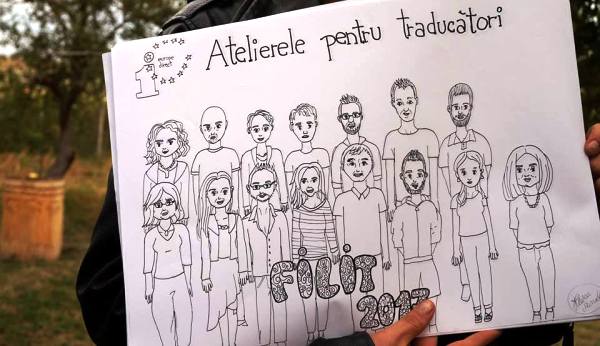 Atelierele pentru traducători
europe
direct
FILIT
2017